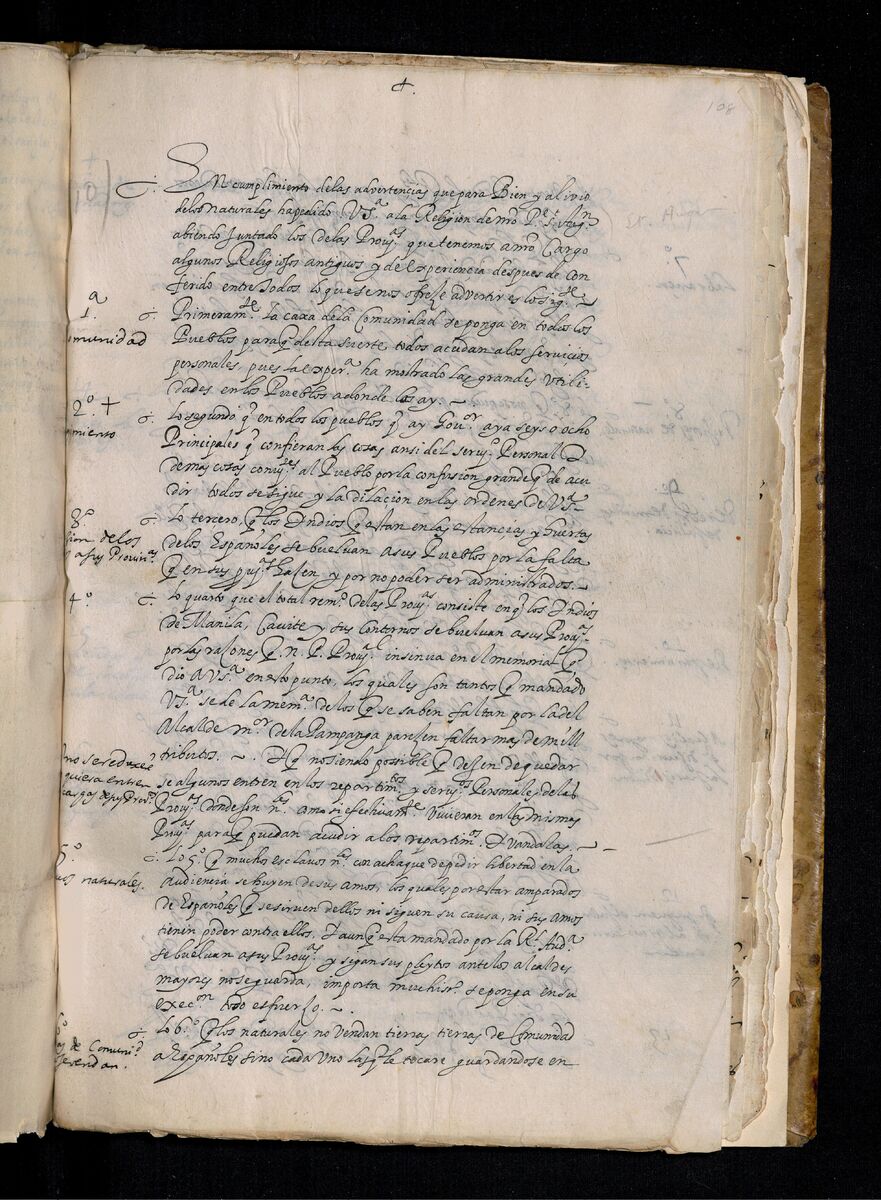 +
108
En cumplimiento delas advertencias que para Bien y alivio
delos Naturales ha pedido V.S.ª a la Religion de nro P.e S. Aug.n
abiendo Juntado los delas Prou.as que tenemos a nro Cargo
algunos Religiosos antiguos y de Experiencia despues de con
ferido entre todos. lo que se nos ofreze advertir es lo sig.te
1.ª
Comunidad
Primeram.te La caxa dela Comunidad se ponga en todos los
Pueblos paraq desta suerte todos acudan alos servicios
personales, pues la exper.ª ha mostrado las grandes Utili-
dades en los Pueblos adonde los ay. —
2.º +
Lo segundo q en todos los pueblos q ay Gou.or aya seys o ocho
Principales q confieran las cosas ansi del seru.º Personal
demas cosas conu.tes al Pueblo por la confusion grande q de acu
dir todos se sigue y la dilacion en las ordenes de V.S.ª
3.º
cion de los
a sus Prouin.as
Lo tercero, q los Indios q estan en las estancias y huertas
delos Españoles se bueluan asus Pueblos por la falta
q en sus pu.os hazen y por no poder ser administrados. —
4.º
Lo quarto que el total rem.º delas Prou.as consiste en q los Indios
de Manila, Cauite y sus Contornos se bueluan asus Prou.as
por las razones q N. P. Prou.l insinua en el memorial q
dio a V.S.ª en esto punto, los quales son tantos q mandado
V.S.ª se de la mem.ª de los q se saben faltan por la del
Alcalde m.or de la Pampanga parezen faltar mas de mill
tributos. — . Y q no siendo posible q dejen de quedar
no se reduce
quiera entre
cargas de sus Prou.as
se algunos entren en los repartim.tos y seru.os Personales delas
Prou.as donde son n.les como si efectiuam.te Vivieran en las mismas
Prou.as paraq puedan acudir a los repartim.tos y Vandalas. —
5.º
naturales.
Lo 5.º q muchos esclauos n.les con achaque de pedir libertad en la
Audiencia se huyen de sus amos, los quales por estar amparados
de Españoles q se siruen dellos ni siguen su causa, ni sus amos
tienen poder contra ellos. Y aunq esta mandado por la R.l Aud.ª
se bueluan asus Prou.as y sigan sus pleytos ante los alcaldes
mayores no se guarda, importa much.º se ponga en su
exec.on todo esfuerzo. —
6.º
de Comuni.d
se vendan.
Lo 6.º q los naturales no vendan tierras tierras de Comunidad
a Españoles sino cada uno las q le tocare guardandose en